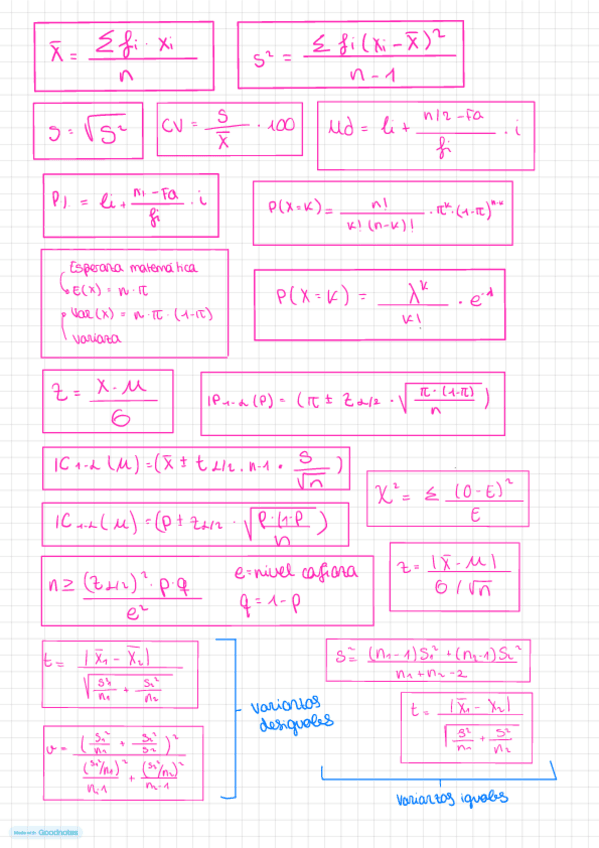 x̄ = Σ fi · xi / n
s² = Σ fi (xi - x̄)² / n - 1
s = √s²
CV = s / x̄ · 100
Md = li + n/2 - Fa / fi · i
Pj = li + nj - Fa / fi · i
P(X=K) = n! / K! (n-K)! · π^K · (1-π)^n-K
Esperanza matemática
E(x) = n · π
Var(x) = n · π · (1-π)
Varianza
P(X=K) = λ^K / K! · e^-λ
z = X - μ / σ
IP1-α(p) = (π ± zα/2 · √π·(1-π) / n)
IC1-α(μ) = (x̄ ± tα/2, n-1 · s / √n)
χ² = Σ (O-E)² / E
IC1-α(μ) = (p ± zα/2 · √p·(1-p / n)
z = |x̄ - μ| / σ/√n
n ≥ (zα/2)² · p·q / e²
e = nivel
q = 1-p
t = |x̄1 - x̄2| / √s1²/n1 + s2²/n2
s² = (n1-1)S1² + (n2-1)S2² / n1+n2-2
varianzas
desiguales
t = |x̄1 - x2| / √s²/n1 + s²/n2
v = (s1²/n1 + s2²/s2)² / (s1²/n1)²/n1-1 + (s2²/n2)²/n2-1
varianzas iguales
Made with Goodnotes